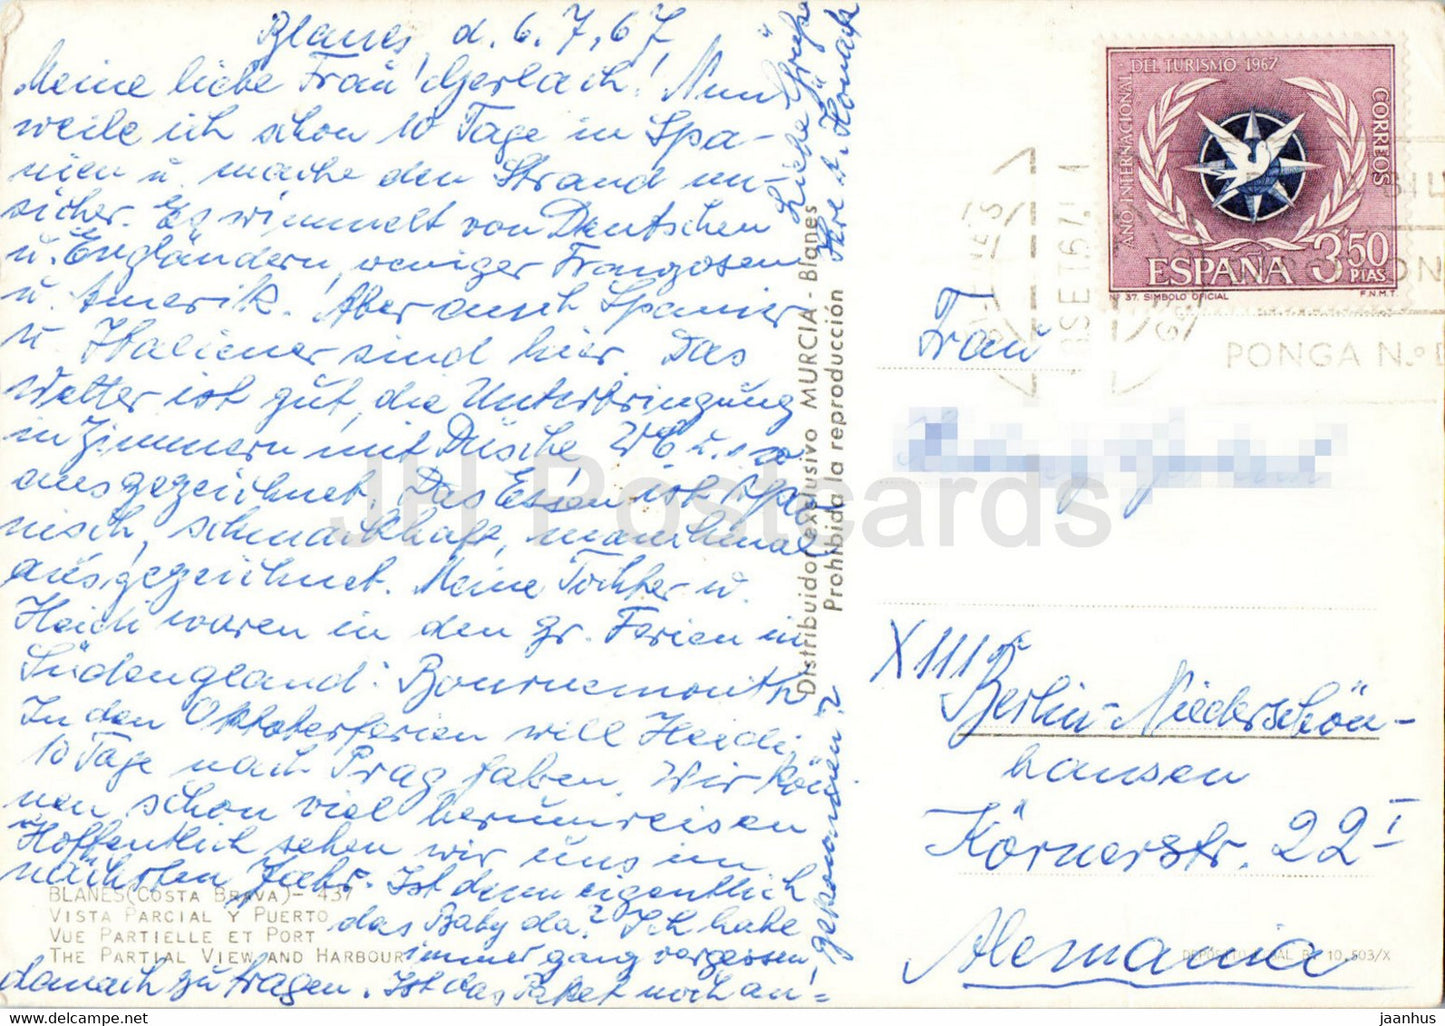 Blanes, d. 6.7.67
Meine liebe Frau Gerlach! Nun
weile ich schon 10 Tage in Spa-
nien u. mache den Strand un-
sicher. Es wimmelt von Deutschen
u. Engländern, weniger Franzosen
u. Amerik. Aber auch Spanier
u. Italiener sind hier. Das
Wetter ist gut, die Unterbringung
in Zimmern mit Dusche, WC u.s.w.
ausgezeichnet. Das Essen ist spa-
nisch, schmackhaft, manchmal
ausgezeichnet. Meine Tochter u.
Heidi waren in den gr. Ferien in
Südengland: Bournemouth.
In den Oktoberferien will Heidi
10 Tage nach Prag fahren. Wir kön-
nen schon viel herumreisen
Hoffentlich sehen wir uns im
nächsten Jahr. Ist denn eigentlich
das Baby da? Ich habe
immer ganz vergessen,
danach zu fragen. Ist das Paket noch an-
gekommen?
Liebe Grüße
Ihre
BLANES (COSTA BRAVA) - 437
VISTA PARCIAL Y PUERTO
VUE PARTIELLE ET PORT
THE PARTIAL VIEW AND HARBOUR
Distribuidor exclusivo MURCIA - Blanes
Prohibida la reproducción
AÑO INTERNACIONAL DEL TURISMO 1967
CORREOS
ESPAÑA 3'50 PTAS
Nº 37. SIMBOLO OFICIAL F.N.M.T.
PONGA N.º D
Frau
Berlin-Niederschön-
hausen
Körnerstr. 22 I
Alemania
DEPOSITO LEGAL B. 10.503/X
JH Postcards
www.delcampe.net
jaanhus